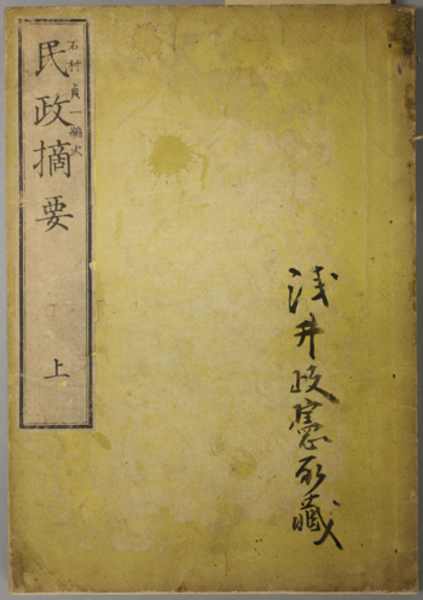 浅井政憲所蔵
石村貞一編次
民政摘要
上